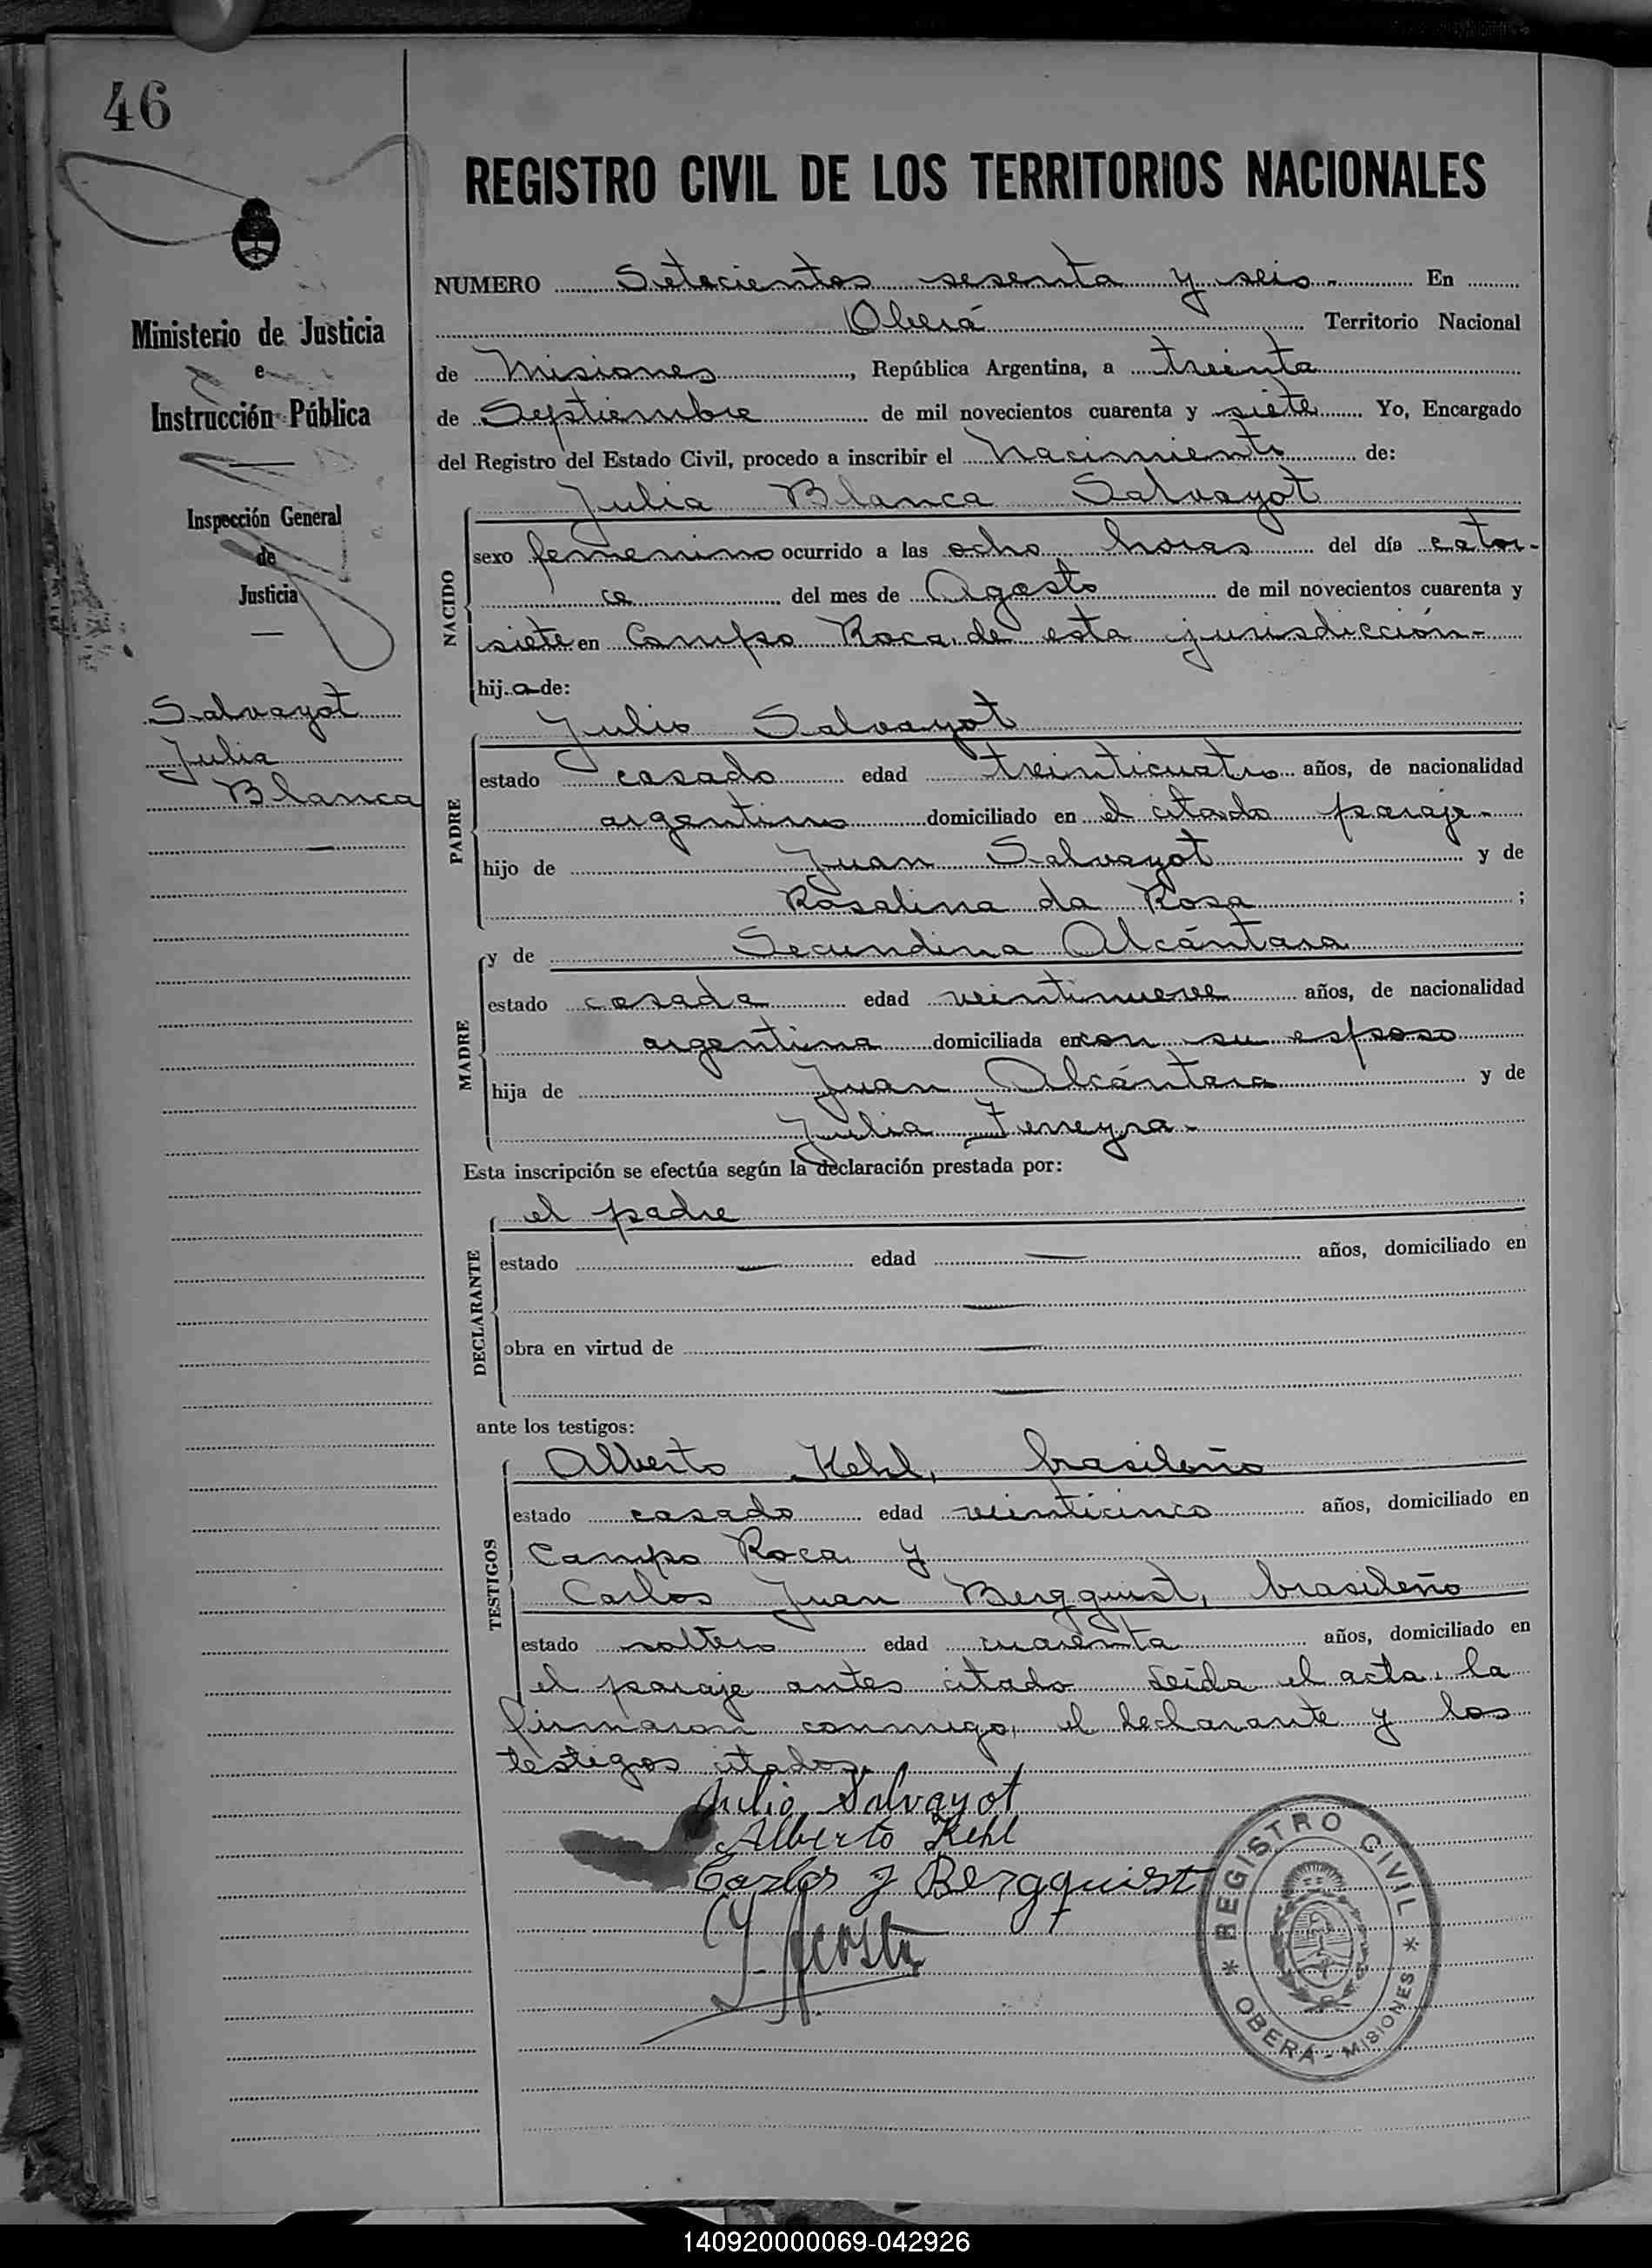 46
REGISTRO CIVIL DE LOS TERRITORIOS NACIONALES
Ministerio de Justicia
e
Instrucción Pública
Inspección General
de
Justicia
Salvayot
Julia
Blanca
NUMERO Setecientos sesenta y seis.- En
Oberá Territorio Nacional
de Misiones, República Argentina, a treinta
de Septiembre de mil novecientos cuarenta y siete Yo, Encargado
del Registro del Estado Civil, procedo a inscribir el nacimiento de:
Julia Blanca Salvayot
NACIDO
sexo femenino ocurrido a las ocho horas del día cator-
ce del mes de Agosto de mil novecientos cuarenta y
siete en Campo Roca, de esta jurisdicción.-
hij a de:
Julio Salvayot
PADRE
estado casado edad treinticuatro años, de nacionalidad
argentino domiciliado en el citado paraje.-
hijo de Juan Salvayot y de
Rosalina da Rosa ;
y de Secundina Alcántara
MADRE
estado casada edad veintinueve años, de nacionalidad
argentina domiciliada en con su esposo
hija de Juan Alcántara y de
Julia Ferreyra.-
Esta inscripción se efectúa según la declaración prestada por:
el padre
DECLARANTE
estado — edad — años, domiciliado en
—
obra en virtud de —
—
ante los testigos:
TESTIGOS
Alberto Kehl, brasileño
estado casado edad veinticinco años, domiciliado en
Campo Roca y
Carlos Juan Bergquist, brasileño
estado soltero edad cuarenta años, domiciliado en
el paraje antes citado Leída el acta, la
firmaron conmigo, el declarante y los
testigos citados.
Julio Salvayot
Alberto Kehl
Carlos J Bergquist
Y. Acosta
REGISTRO CIVIL
* OBERA - MISIONES *
140920000069-042926